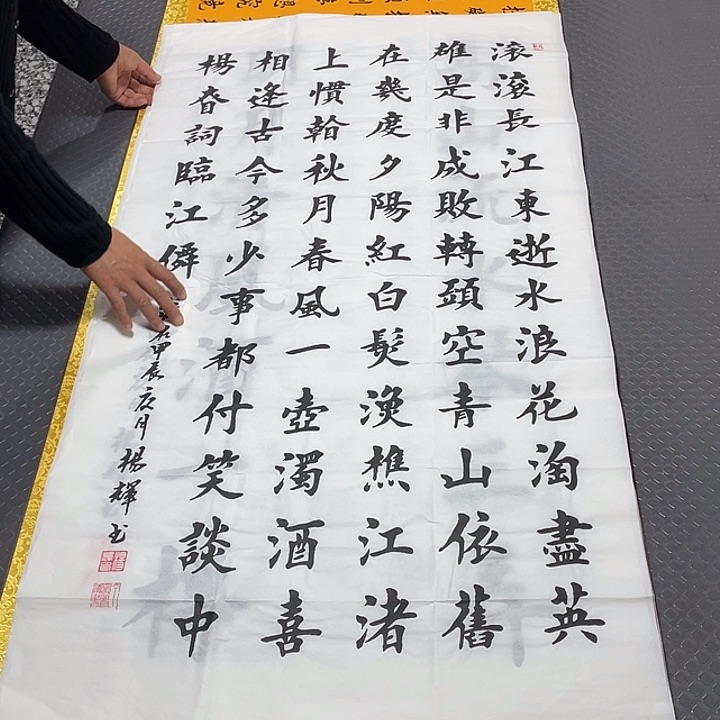 滚滚長江東逝水浪花淘盡英
雄是非成敗轉頭空青山依舊
在幾度夕陽紅白髮漁樵江渚
上慣看秋月春風一壺濁酒喜
相逢古今多少事都付笑談中
楊眘詞臨江僊
甲辰月楊輝书